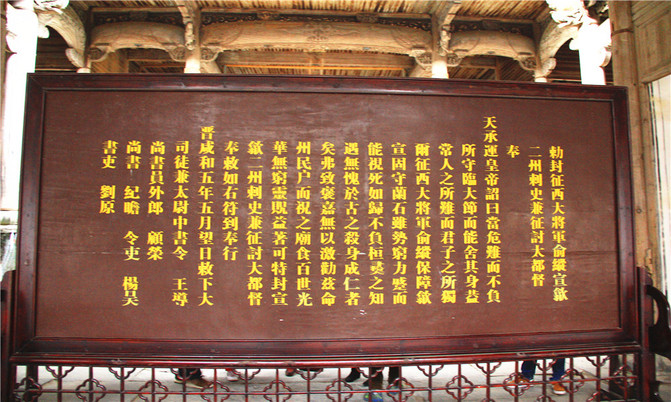 勅封征西大將軍俞縱宣歙
二州刺史兼征討大都督
奉
天承運皇帝詔曰當危難而不負
所守臨大節而能舍其身蓋
常人之所難而君子之所獨
爾征西大將軍俞縱保障歙
宣固守蘭石雖勢窮力蹙而
能視死如歸不負桓彝之知
遇無愧於古之殺身成仁者
矣弗致褒嘉無以激勸茲命
州民戶而視之廟食百世光
華無窮靈既益著可特封宣
歙二州刺史兼征討大都督
奉敕如右符到奉行
晉咸和五年五月望日敕下大
司徒兼太尉中書令 王導
尚書員外郎 顧榮
尚書 紀瞻 令史 楊吴
書吏 劉原